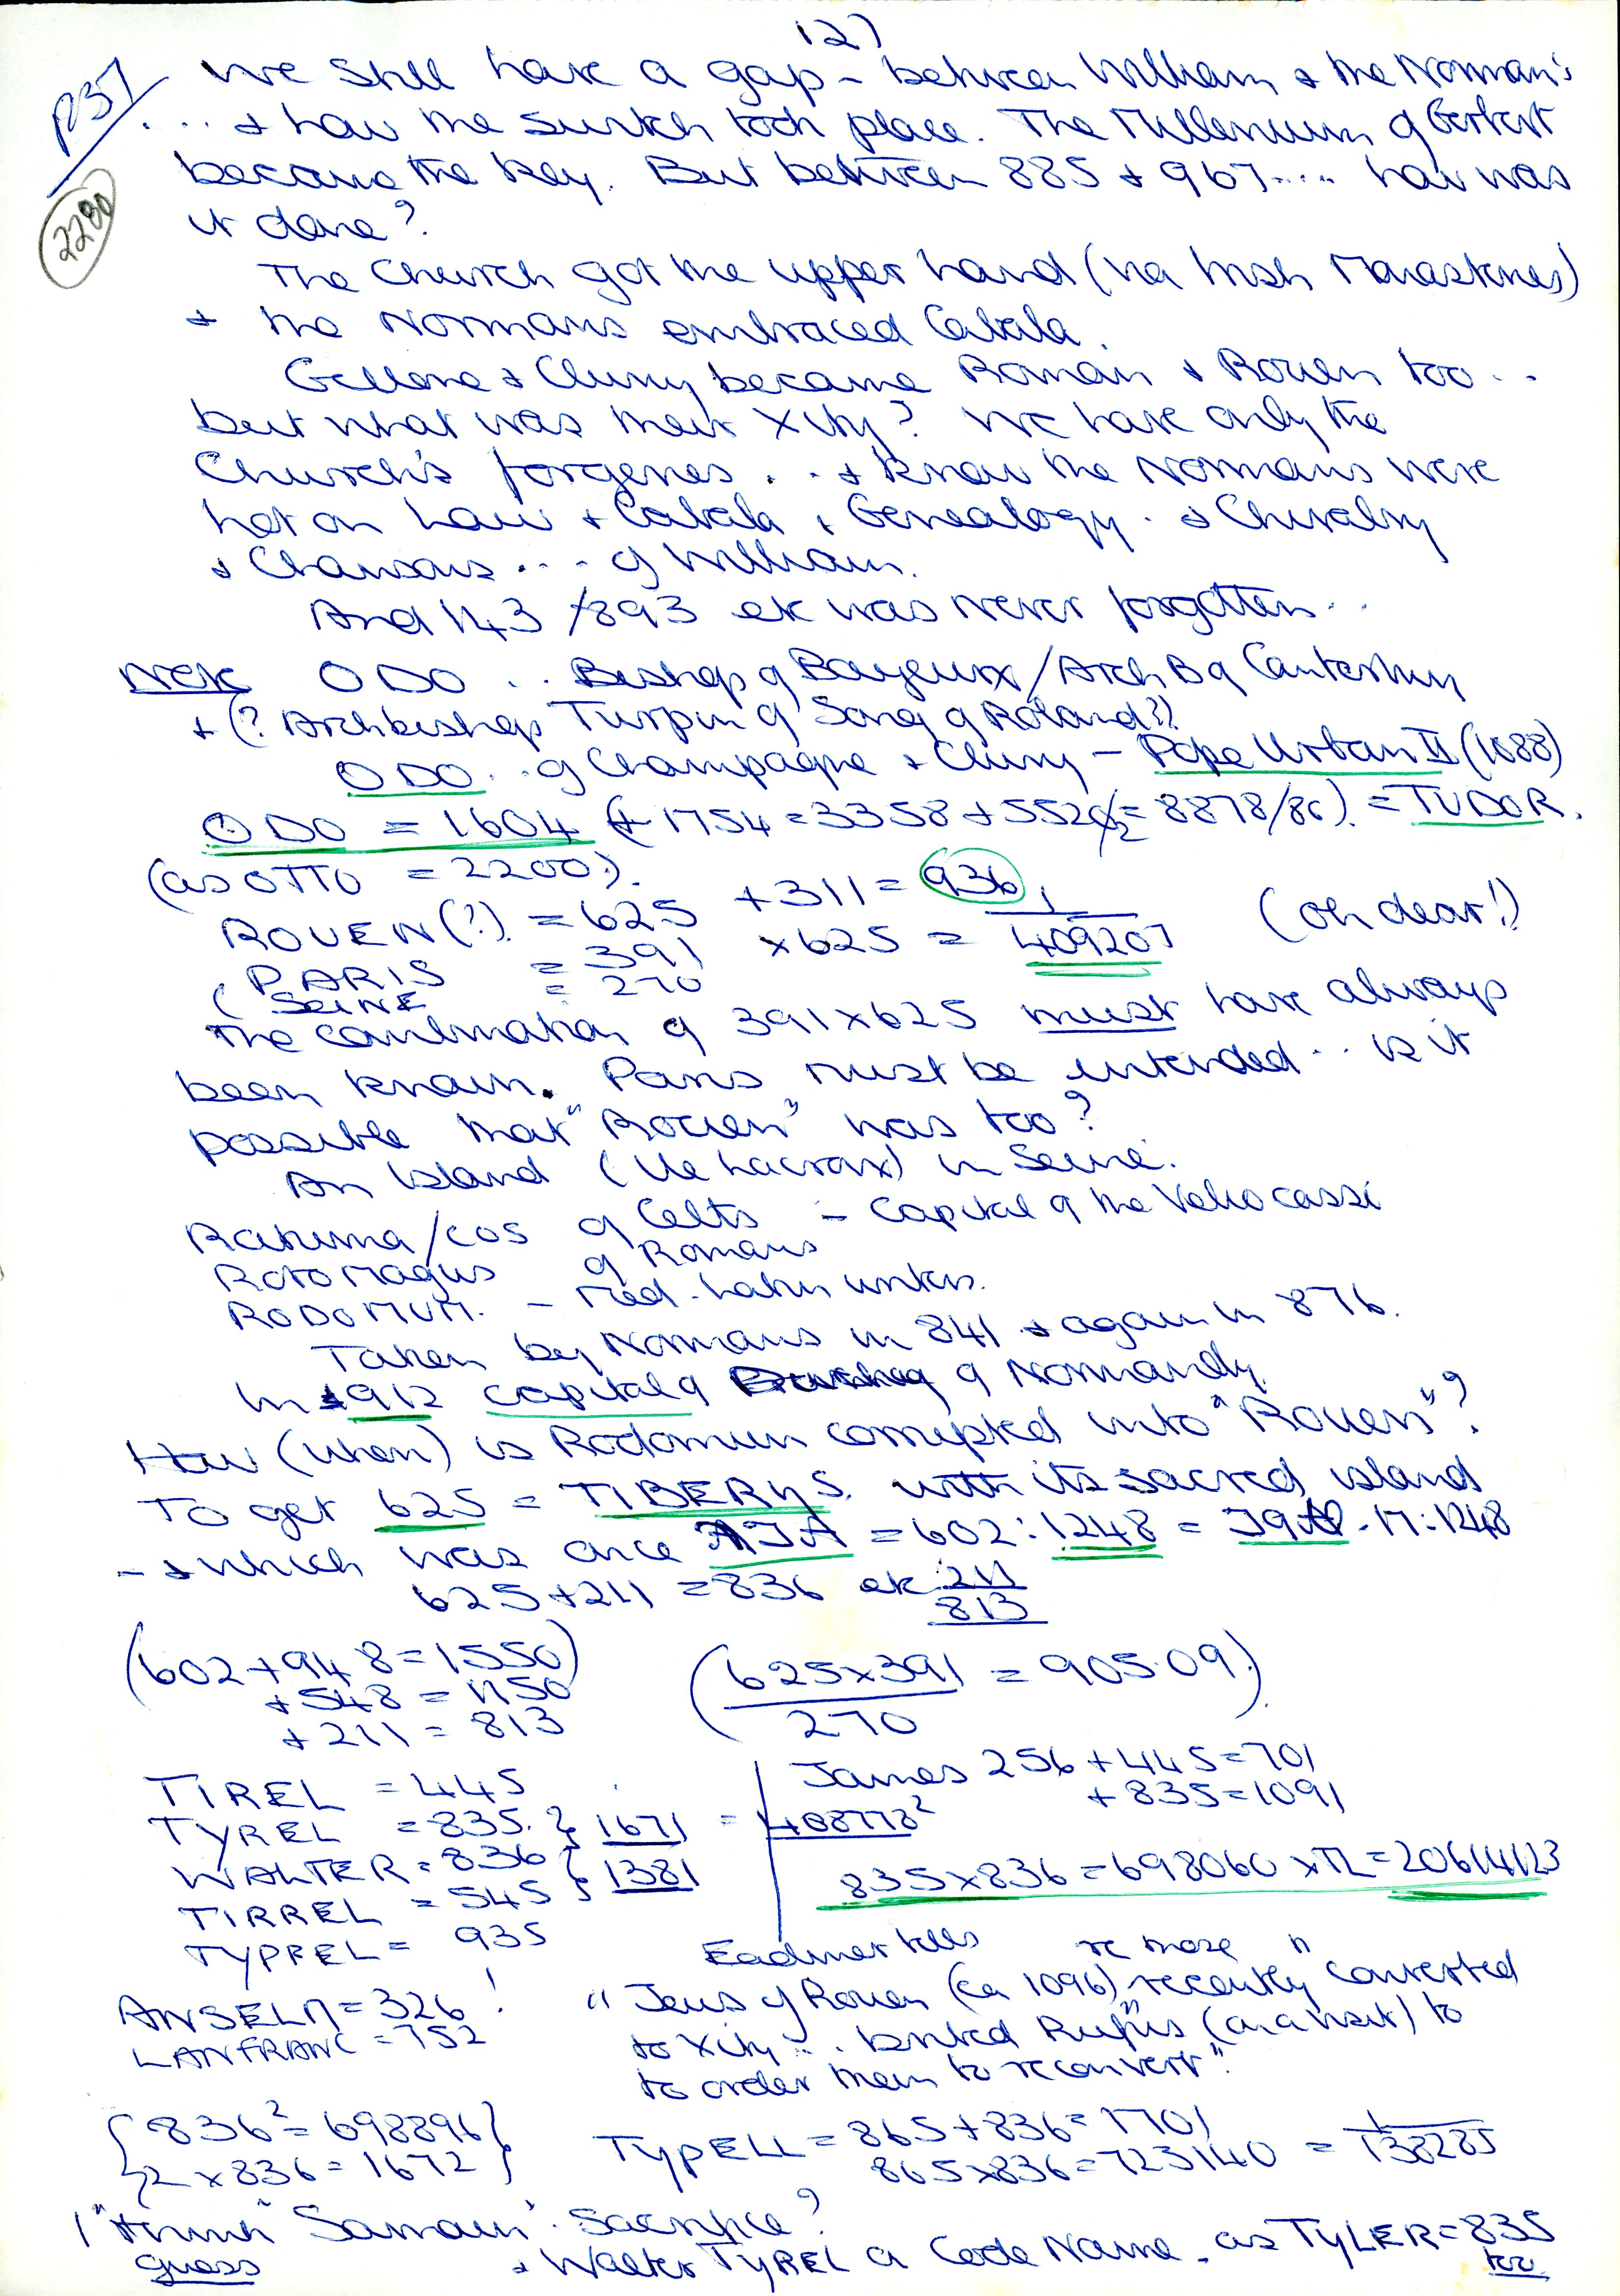 127
P37
2290
We still have a gap - between William & the Norman's
... & how the switch took place. The Millenium of Gerbert
became the key. But between 885 & 967.... how was
it done?
The Church got the upper hand (via Irish Monasteries)
& the Normans embraced Cabala.
Gellone & Cluny became Roman & Rouen too ..
but what was their Xity? We have only the
Church's forgeries. .. & know the Normans were
hot on Law & Cabala, Genealogy. & Chivalry
& Chansons ... of William.
And 143/893 etc was never forgotten...
Note ODO .. Bishop of Bayeux/Arch B of Canterbury
+ (? Archbishop Turpin of Song of Roland??)
ODO .. of Champagne & Cluny - Pope Urban II (1088)
ODO = 1604 (+ 1754 = 3358 + 5520/2 = 8878/86). = TUDOR.
(as OTTO = 2200).
ROUEN(?). = 625 + 311 = 936
PARIS = 391 x 625 = 1/409207 (oh dear!)
(SEINE = 270
The combination of 391 x 625 must have always
been known. Paris must be intended .. is it
possible that "Rouen" was too?
An Island (Ile Lacroix) in Seine.
Ratuma/cos of Celts - Capital of the Veliocassi
Rotomagus of Romans
RODOMUM. - Med. Latin writers.
Taken by Normans in 841 & again in 876.
In 912 capital of Normandy.
How (when) is Rodomum corrupted into "Rouen"?
To get 625 = TIBERYS. with its sacred island
- & which was once AIA = 602 : 1248 = 17 : 1248
625 + 211 = 836 etc 211
813
(602 + 948 = 1550)
+ 548 = 1150
+ 211 = 813
(625 x 391 / 270 = 905.09.)
TIREL = 445
TYREL = 835. } 1671 = 408778²
WALTER = 836 } 1381
TIRREL = 545
TYPREL = 935
James 256 + 445 = 701
+ 835 = 1091
835 x 836 = 698060 x TL = 20614123
ANSELM = 326!
LANFRANC = 752
Eadmer tells re more
"Jews of Rouen (ca 1096) "recently" converted
to Xity ... bribed Rufus (on a visit) to
to order them to reconvert".
{836² = 698896}
{2 x 836 = 1672}
TYPELL = 865 + 836 = 1701
865 x 836 = 723140 = 1/138285
"Samain". Sacrifice?
guess
& Walter TYREL a Code Name. as TYLER = 835
too.